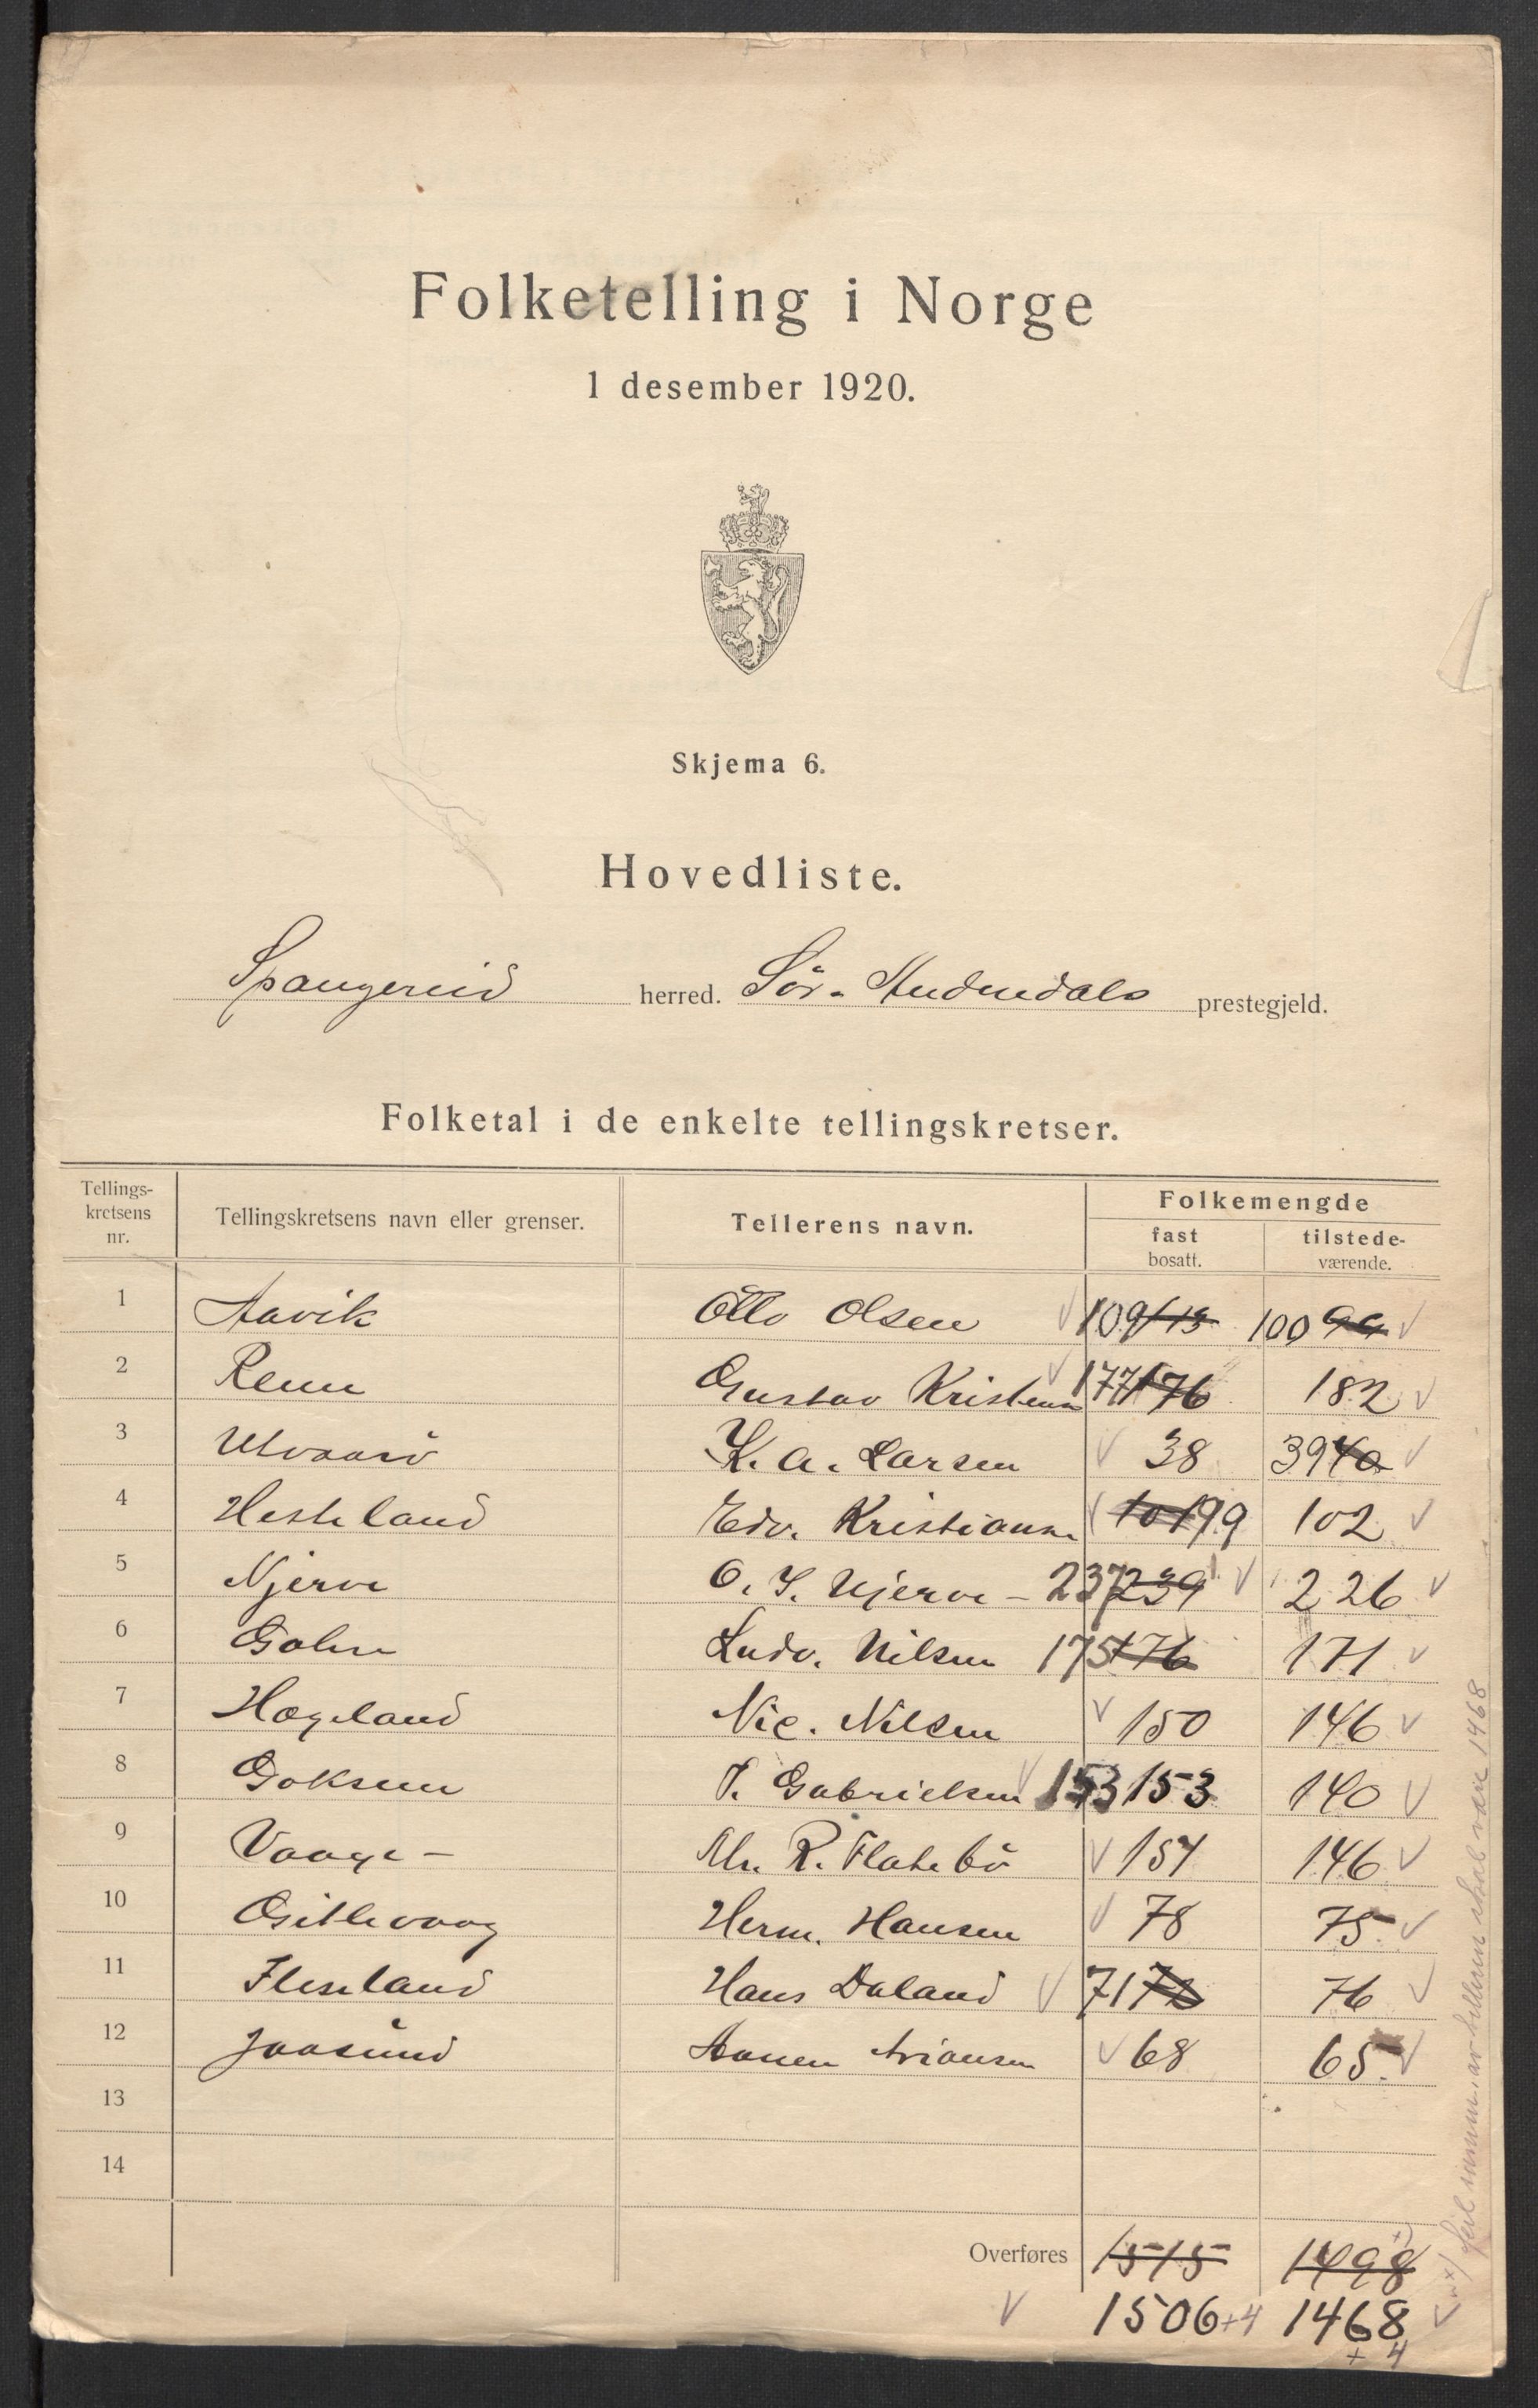 Folketelling i Norge
1 desember 1920.
Skjema 6.
Hovedliste.
Spangereid herred. Sör-Audnedals prestegjeld.
Folketal i de enkelte tellingskretser.
Tellings-kretsens nr. Tellingskretsens navn eller grenser. Tellerens navn. Folkemengde
fast bosatt. tilstede-værende.
1 Aavik Otto Olsen √ 109 113 100 99 √
2 Reme Gustav Kristensen √ 177 176 182 √
3 Utvaarö K. A. Larsen √ 38 39 40 √
4 Hesteland Edv. Kristiansen √ 101 99 102 √
5 Njerve O. S. Njerve - 237 239 √ 226 √
6 Gahre Ludv. Nilsen 175 176 171 √
7 Hageland Nic. Nilsen √ 150 146 √
8 Goksem T. Gabrielsen √ 153 153 140 √
9 Vaage - M. R. Flatebö √ 154 146 √
10 Gitlevaag Herm. Hansen √ 78 75 √
11 Fleseland Hans Daland √ 71 72 76 √
12 Jaasund Aanen Ariansen √ 68 65 √
13
14
Overføres 1515 1498 x)
√ 1506 +4 1468 √
+ 4
x) feil summ. av telleren skal være 1468